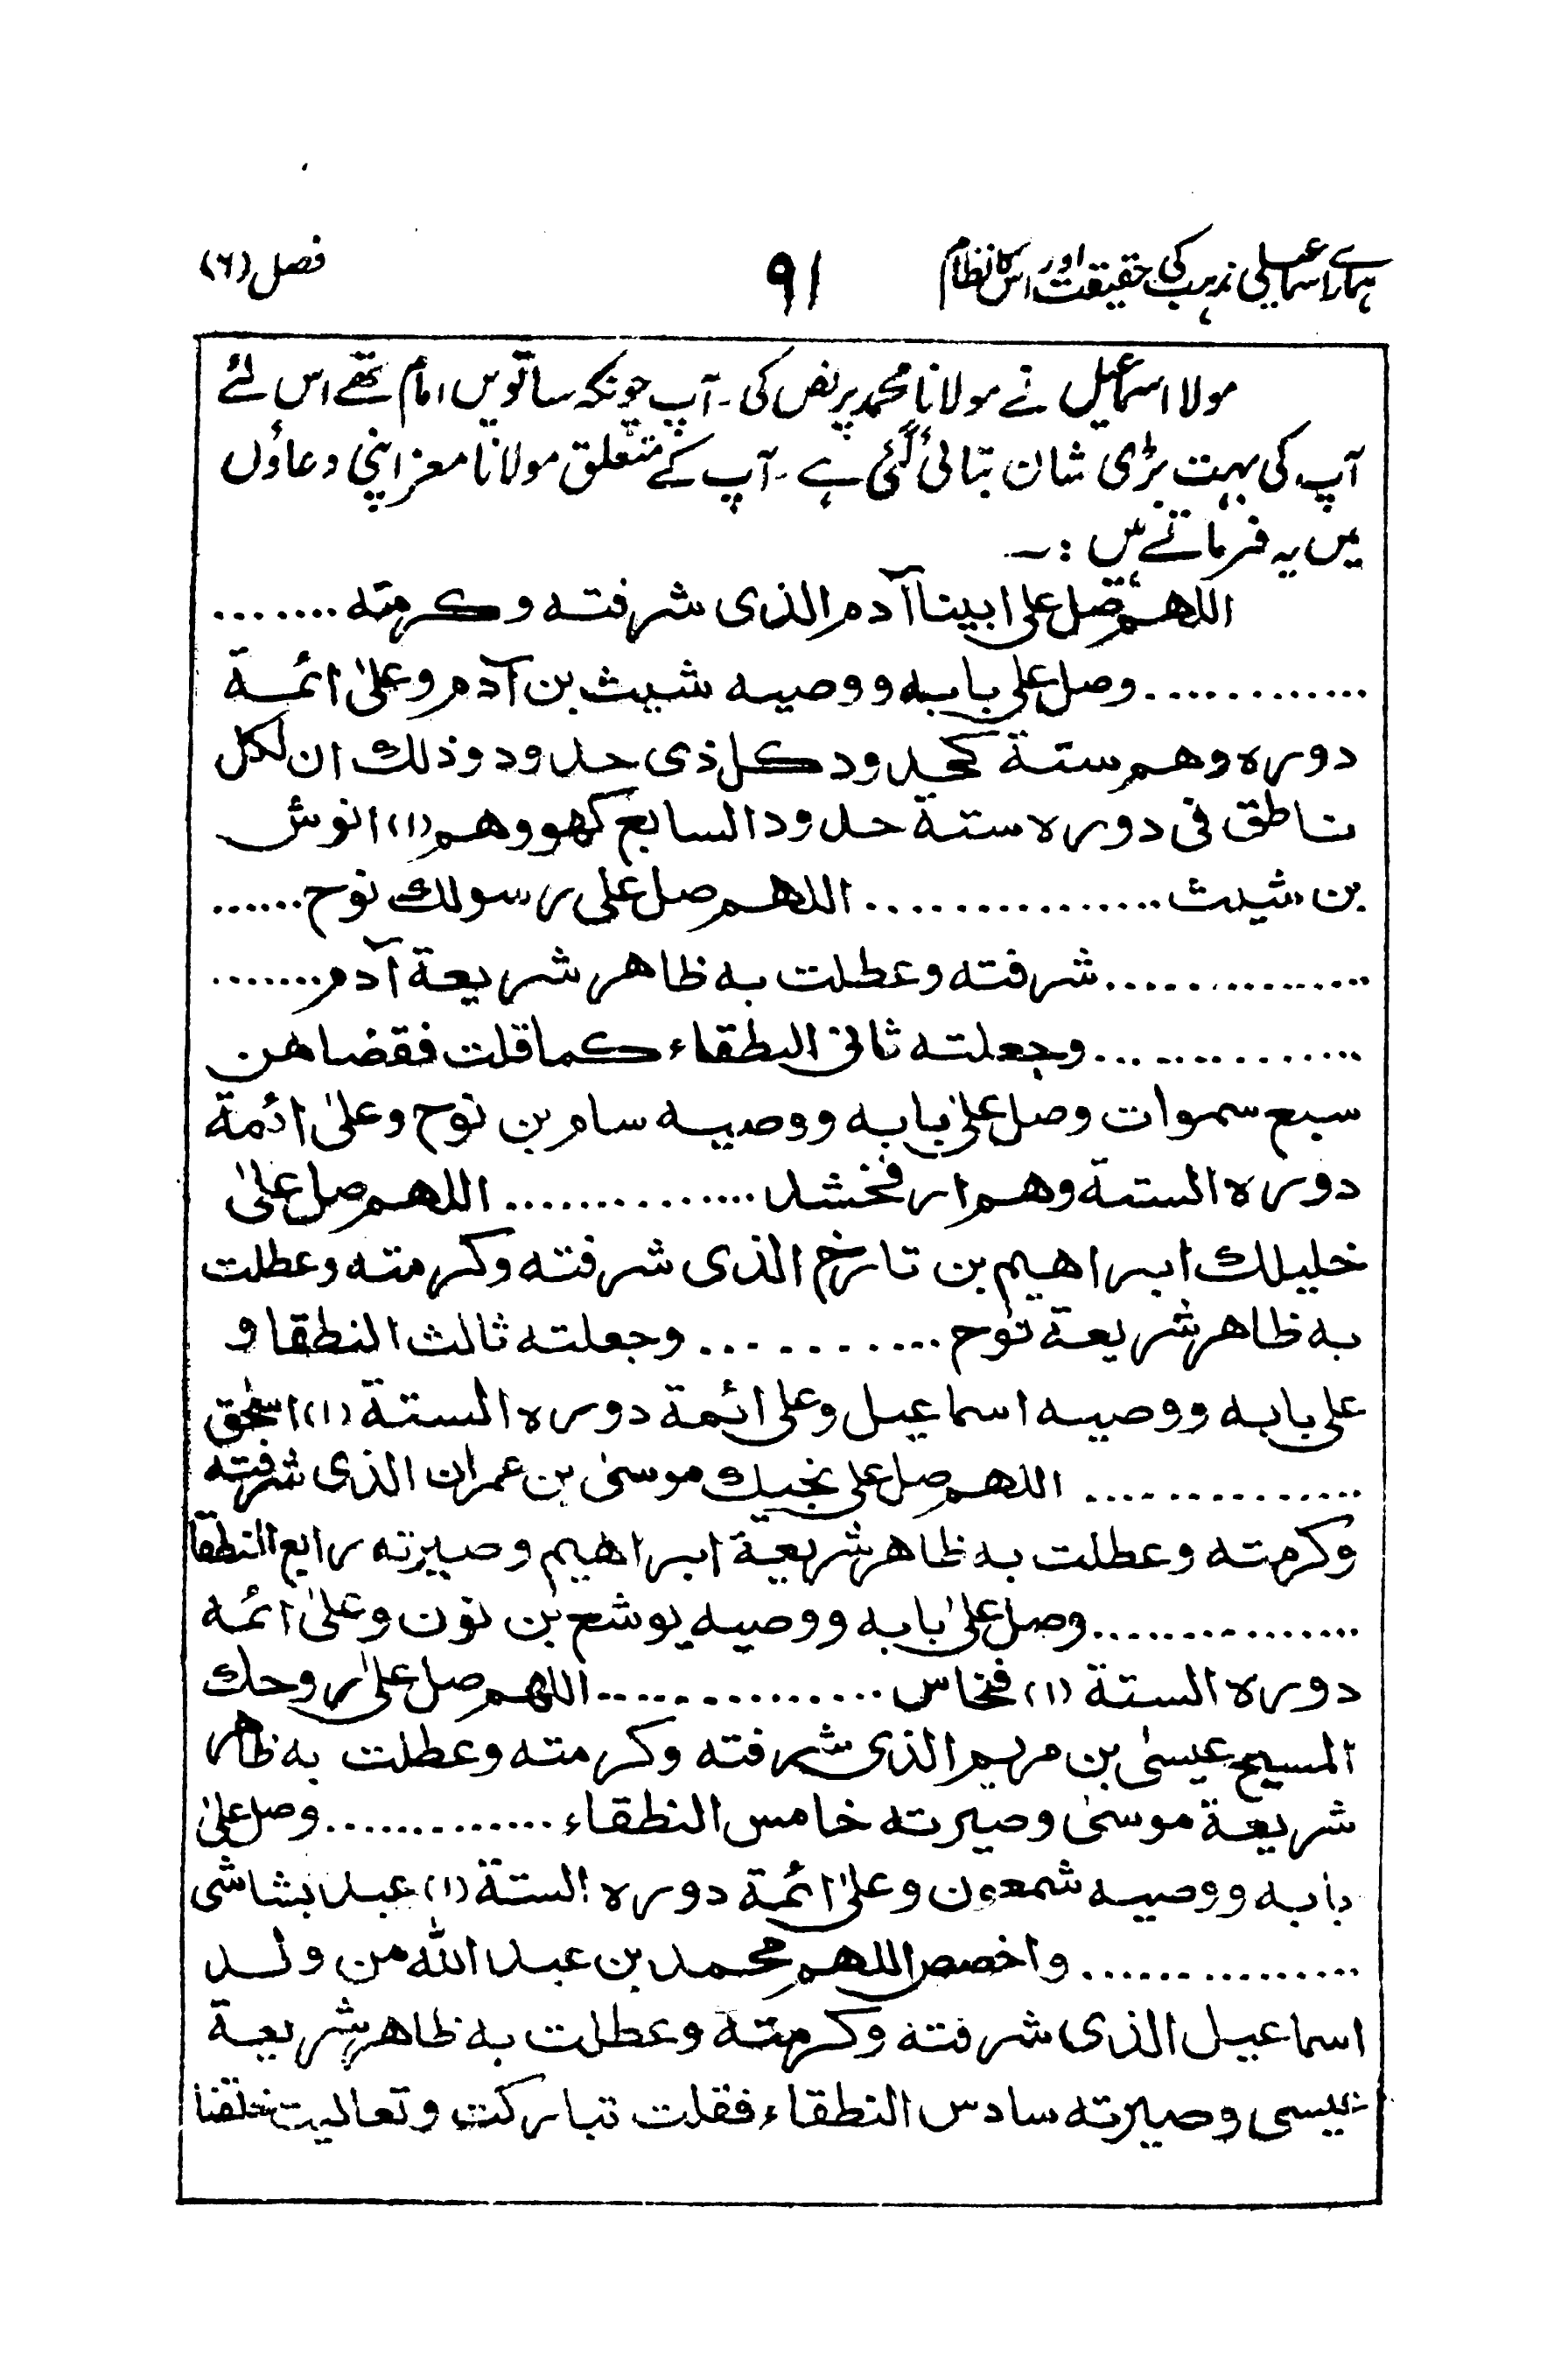 ہمارے اسماعیلی مذہب کی حقیقت اور اس کا نظام ۹۱ فصل (۶)
مولا اسماعیل نے مولانا محمد پر نص کی۔ آپ چونکہ ساتویں امام تھے اس لئے
آپ کی بہت بڑی شان بتائی گئی ہے۔ آپ کے متعلق مولانا معز اپنی دعاؤں
میں یہ فرماتے ہیں :۔
اللهم صل على ابينا آدم الذى شرفته وكرمته .......
............. وصل على بابه ووصيه شيث بن آدم وعلىٰ ائمة
دوره وهم ستة كحدود كل ذى حدود وذلك ان لكل
ناطق فى دوره ستة حدود السابع كهو وهم (۱) انوش
بن شيث ............... اللهم صل على رسولك نوح ......
............... شرفته وعطلت به ظاهر شريعة آدم .......
.............. وجعلته ثانى النطقاء كما قلت فقضاهن
سبع سموات وصل علىٰ بابه ووصيه سام بن نوح وعلىٰ ائمة
دوره الستة وهم ارفخشد .............. اللهم صل علىٰ
خليلك ابراهيم بن تارخ الذى شرفته وكرمته وعطلت
به ظاهر شريعة نوح ........... وجعلته ثالث النطقا و
على بابه ووصيه اسماعيل وعلى ائمة دوره الستة (۱) اسحٰق
.............. اللهم صل على نجيك موسىٰ بن عمران الذى شرفته
وكرمته وعطلت به ظاهر شريعة ابراهيم وصيرته رابع النطقا
.............. وصل علىٰ بابه ووصيه يوشع بن نون وعلىٰ ائمه
دوره الستة (۱) فنحاس ............... اللهم صل علىٰ روحك
المسيح عيسىٰ بن مريم الذى شرفته وكرمته وعطلت به ظاهر
شريعة موسىٰ وصيرته خامس النطقاء ............. وصل علىٰ
بابه ووصيه شمعون وعلىٰ ائمة دوره الستة (۱) عبد بشاشى
............... واخصص اللهم محمد بن عبد الله من ولد
اسماعيل الذى شرفته وكرمته وعطلت به ظاهر شريعة
عيسى وصيرته سادس النطقاء فقلت تباركت وتعاليت خلقنا